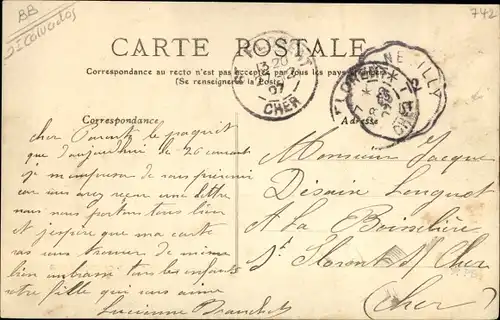 BB
742
CARTE POSTALE
Correspondance au recto n'est pas acceptée par tous les pays
(Se renseigner à la Poste)
Correspondance
Adresse
CHER
cher Parents le paquet
que d'aujourdhui le 26 courant
je m'empresse de vous prévenir
car vous avez reçu une lettre
mais nous portons tous bien
et j'espère que ma carte
vas vous trouver de même
bien embrasse tous les enfants
votre fille qui vous aime
Lucienne
Monsieur Jacque
Désain Longuet
A La Boisselière
St Florent s/ Cher
(Cher)